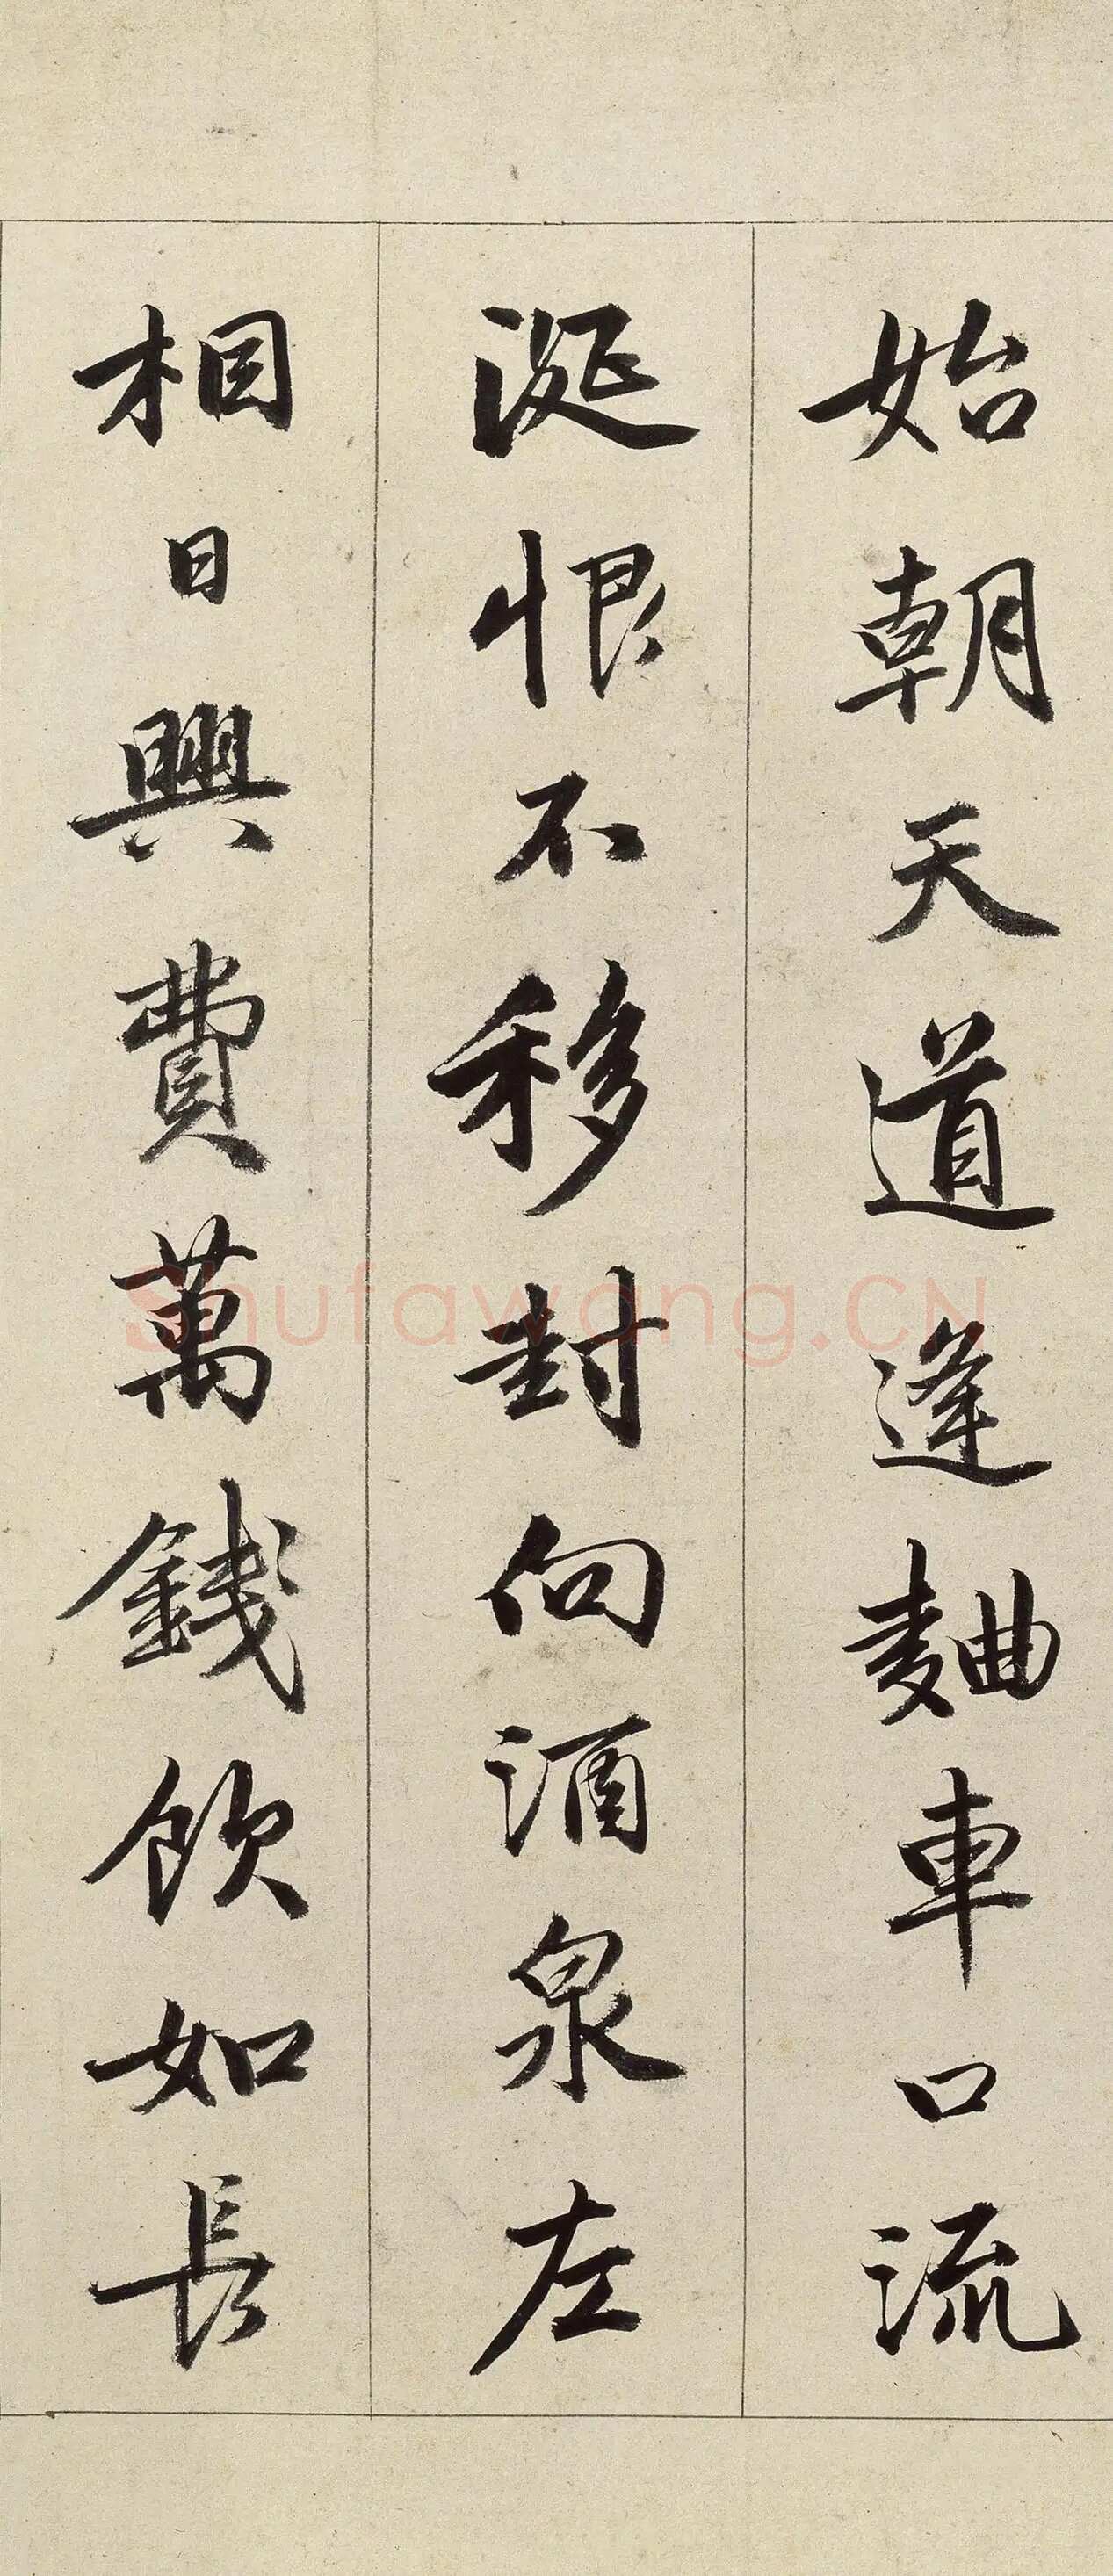 始朝天道逢麯車口流
涎恨不移封向酒泉左
相日興費萬錢飲如長
Shufawang.CN